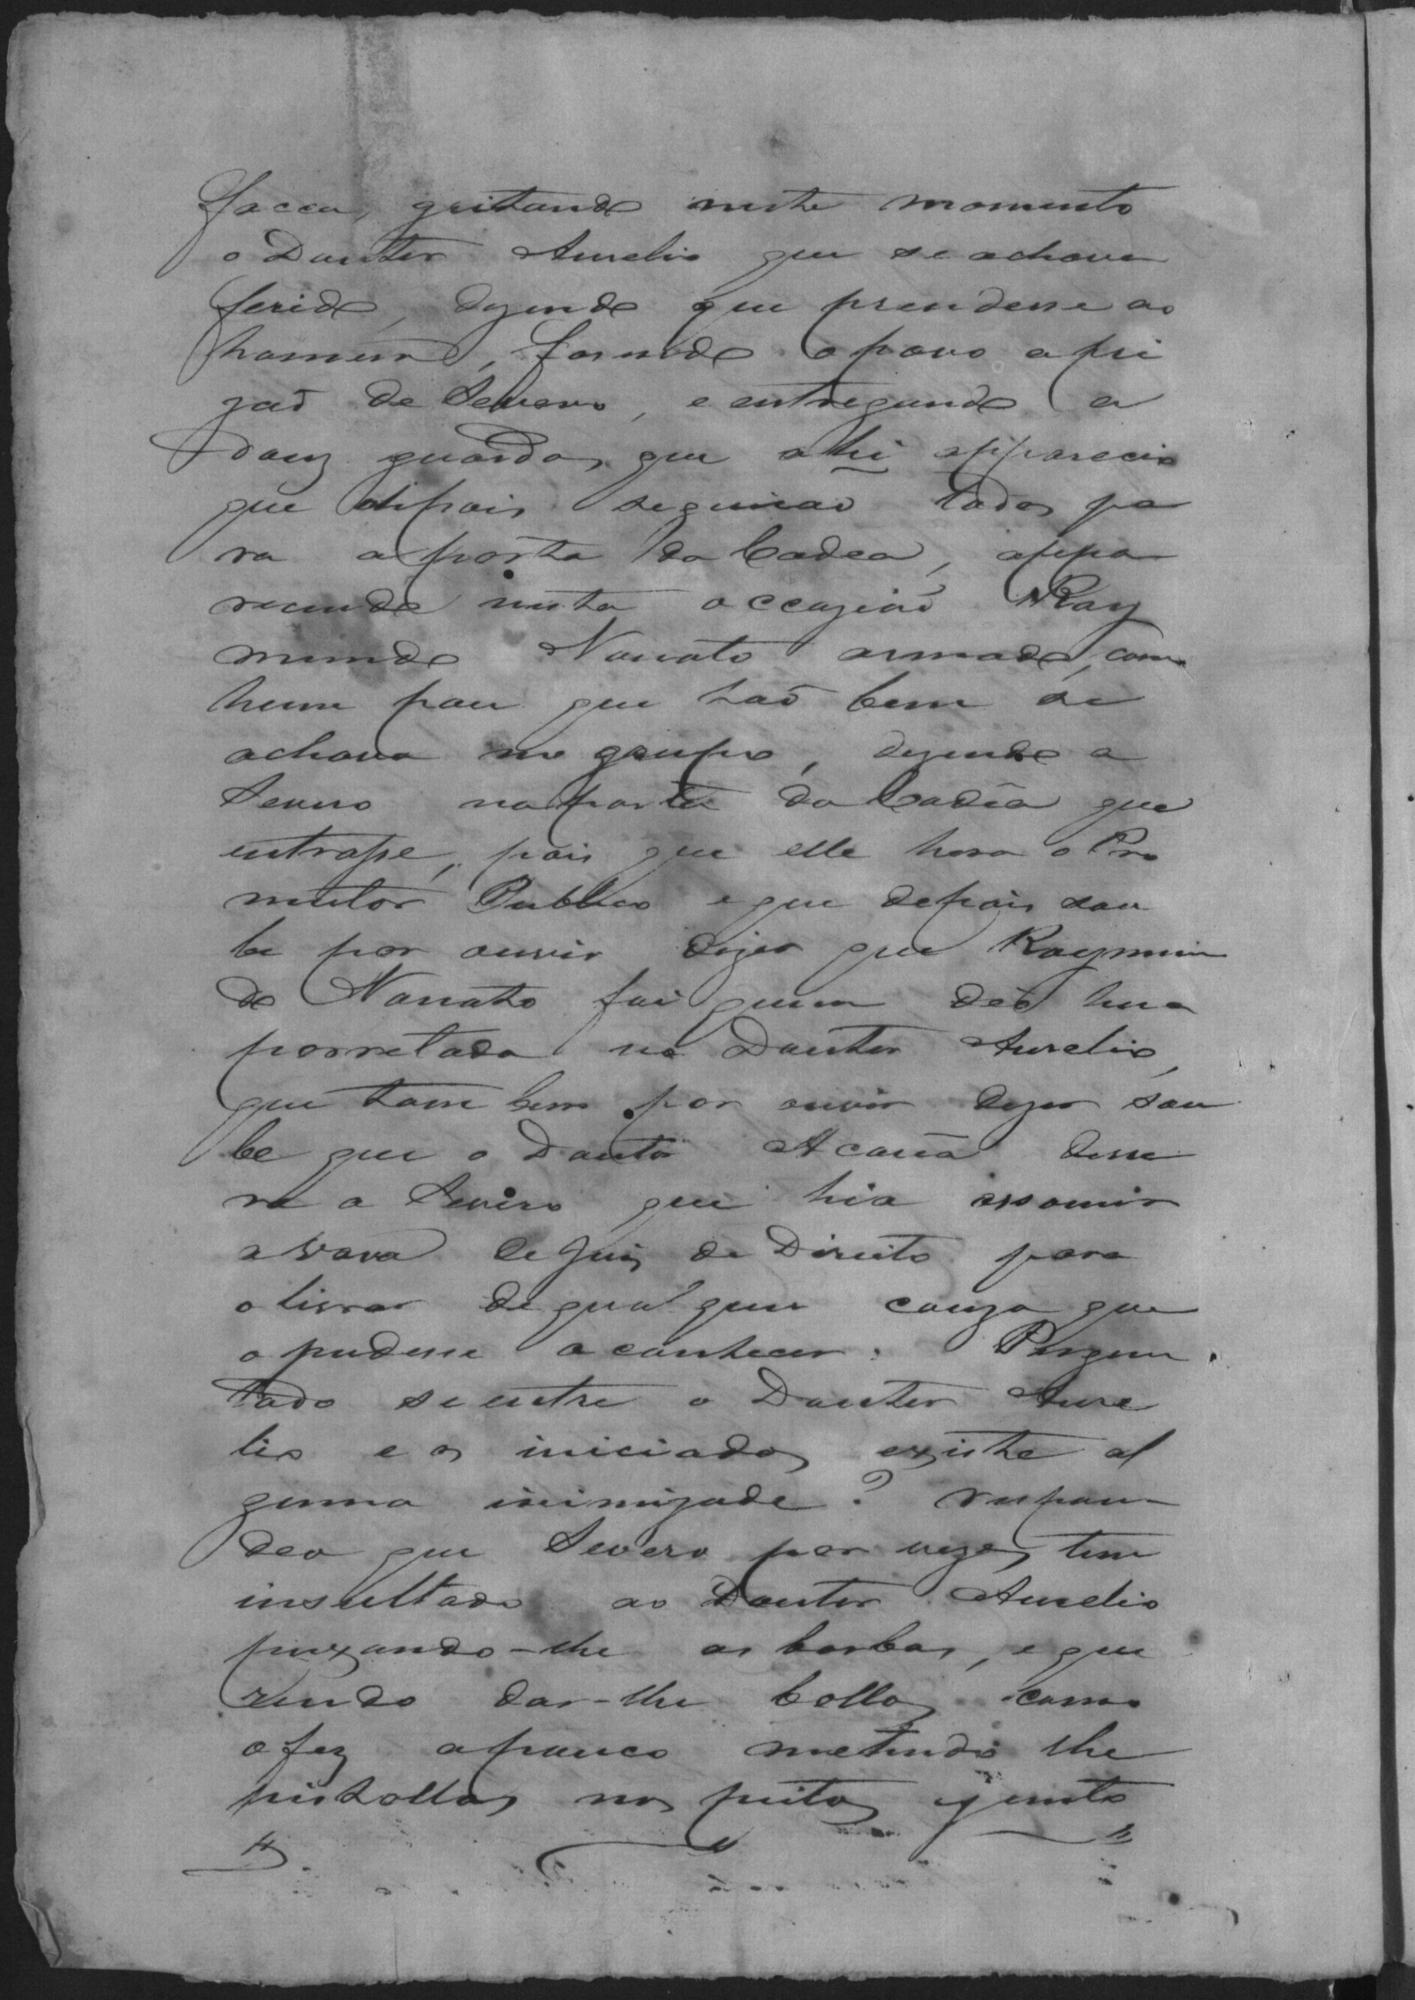 facca, gritando neste momento
o Douter Aurelio que se achava
ferido, dizendo que prendesse ao
homem, fasendo o povo a pri
zaõ de Severo, e entregando a
dous guardas que ahi apparecia
que depois seguiraõ todos pa
ra a porta da Cadea, appa
recendo nesta occaziaõ Ray
mundo Nonato armado com
hum pau que taõ bem se
achava no grupo, dizendo a
Severo na porta da Cadêa que
entrasse, pois que elle hera o Pro
mutor Publico e que depois sou
be por ouvir dizer que Raymun
do Nonato foi quem deo hua
porretada no Douter Aurelio,
que tambem por ouvir dizer sou
be que o Douter Acauã disse
ra a Severo que hia assomir
a vara de Juis de Direito para
o livrar de qualquer couza que
o pudesse acontecer. Pergun
tado se entre o Douter Aure
lio e os iniciados existe al
guma inimizade? respon
deo que Severo por vezes tem
insultado ao Douter Aurelio
puxando-lhe as barbas, e que
rendo dar-lhe bollos como
o fez a pouco metendo lhe
pistollas nos peitos e junto